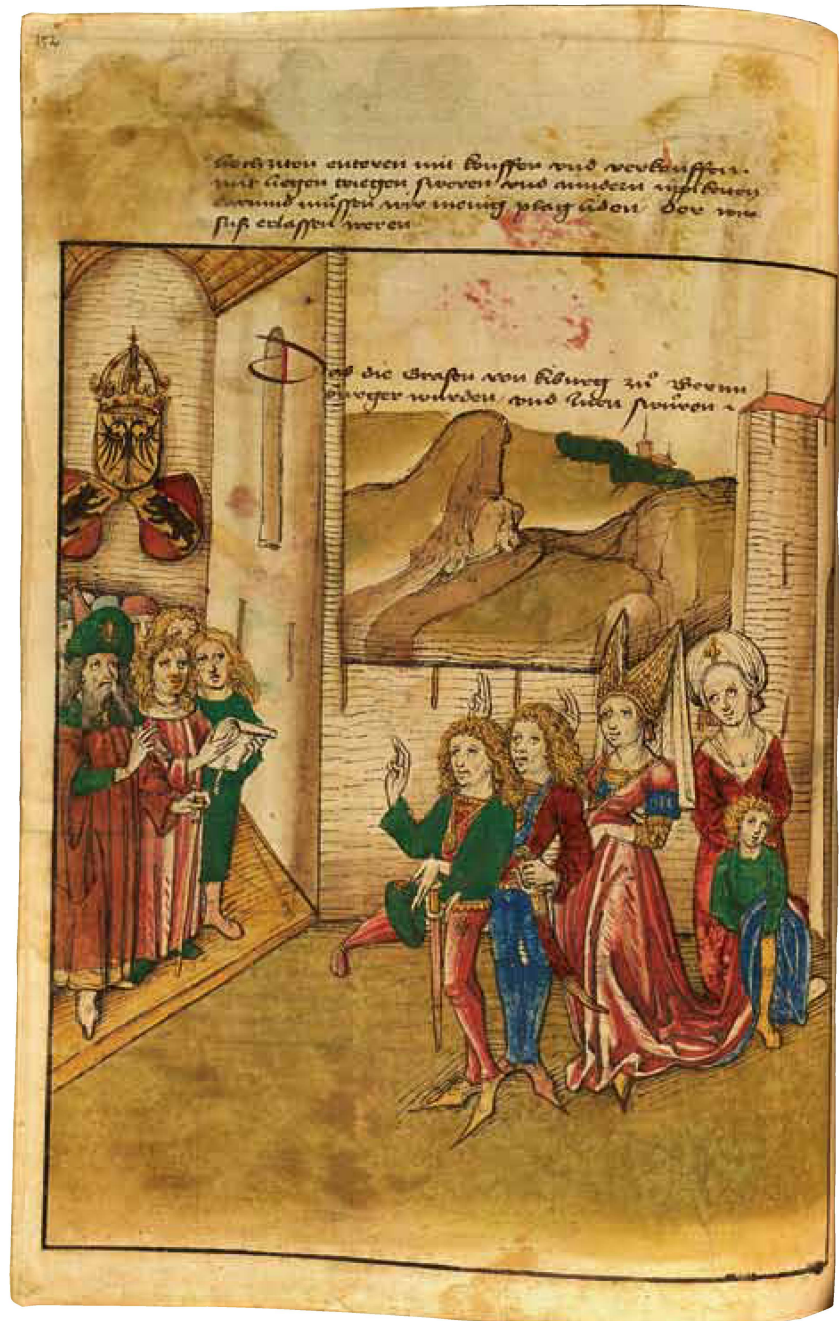 152
hochziten enteren mit kouffen vnd verkouffen.
mit liegen triegen sweren vnd anndern
darumb müssen wir menig plag liden der wir
suß erlassen weren
Das die Grafen von kiburg zů Bernn
burger wurden vnd inen swůren